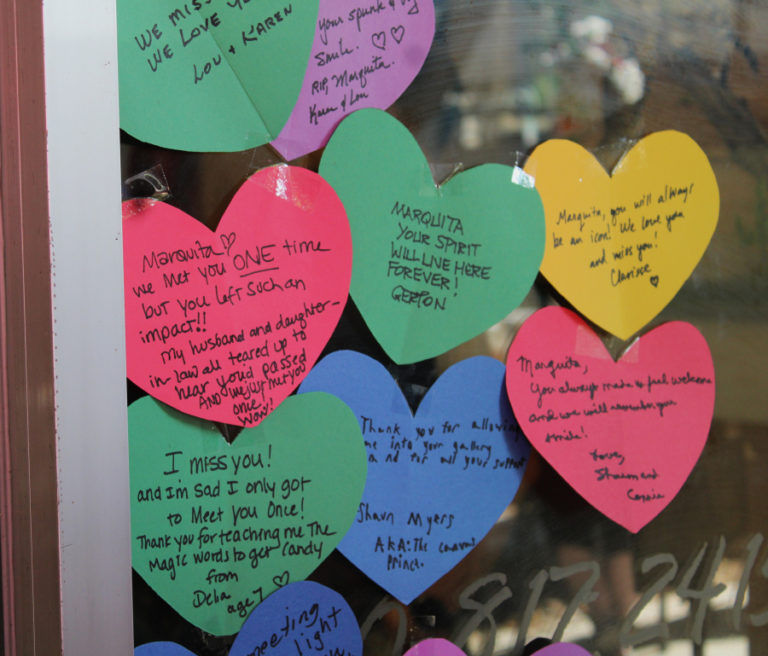 WE MISS
WE LOVE YO
LOU + KAREN
your spunk &
smile.
RIP, Marquita.
Karen & Lou
MARQUITA
YOUR SPIRIT
WILL LIVE HERE
FOREVER!
GERTON
Marquita, you will always
be an icon! We love you
and miss you!
Clarisse
Marquita
we met you ONE time
but you left such an
impact!!
my husband and daughter-
in-law all teared up to
hear you'd passed
AND we just met you
once
WOW!
Marquita,
You always made us feel welcome
and we will remember your
smile!
Love,
Shawn and
Thank you for allowing
me into your gallery
and for all your support
Shavn Myers
AKA: The
Prince.
I MISS YOU!
and I'm Sad I only got
to Meet you Once!
Thank you for teaching me The
Magic words to get candy
from
Delia
age 7
meeting
light
817 241